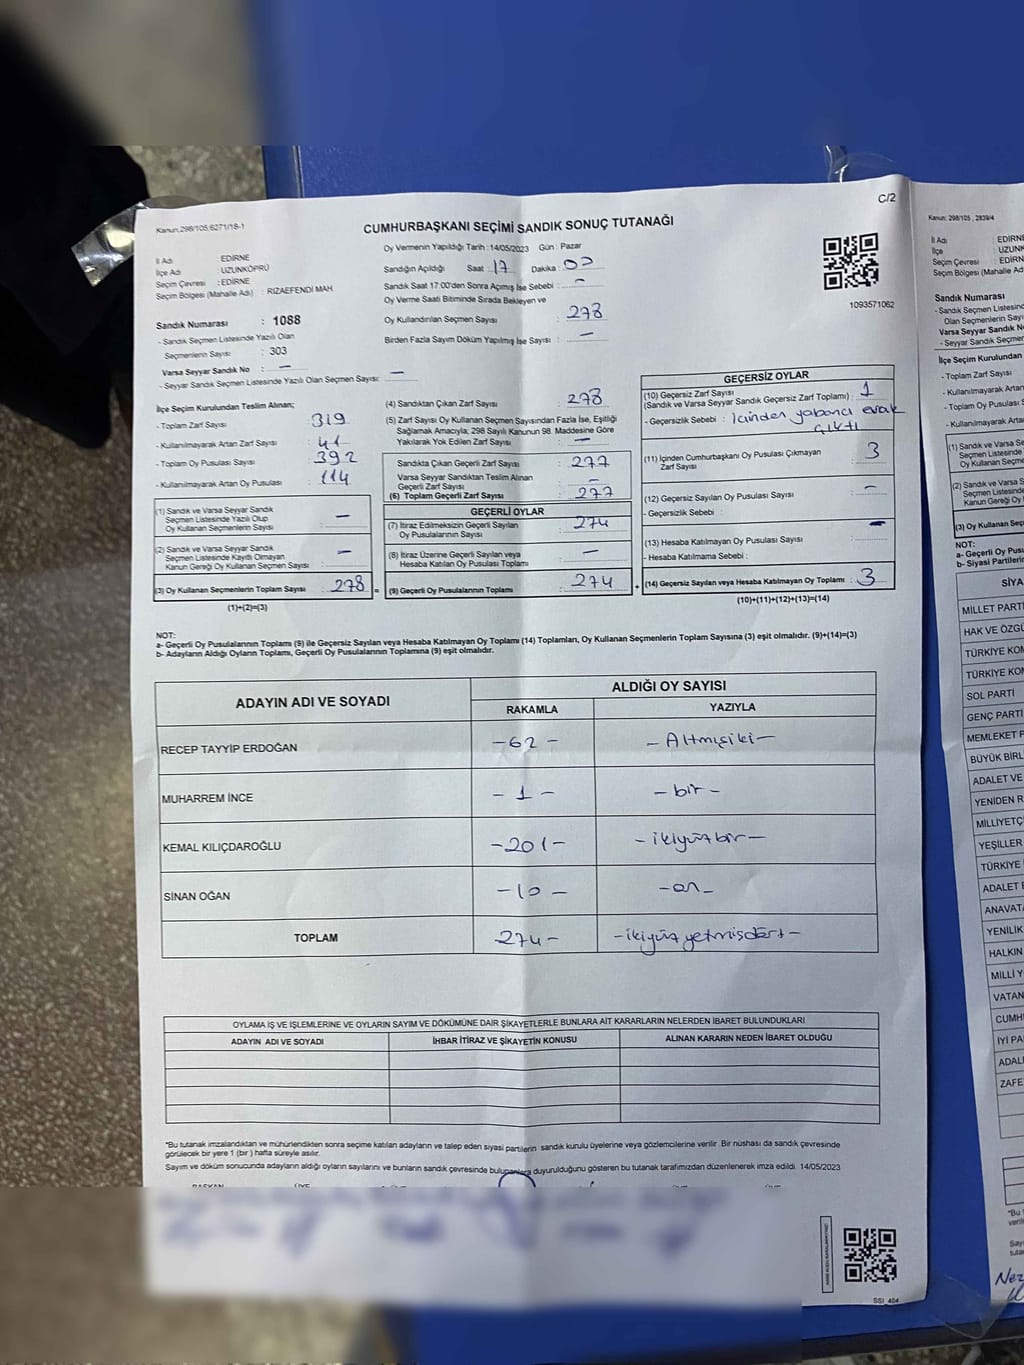 Kanun;298/105;6271/18-1
C/2
CUMHURBAŞKANI SEÇİMİ SANDIK SONUÇ TUTANAĞI
Oy Vermenin Yapıldığı Tarih : 14/05/2023 Gün : Pazar
İl Adı : EDİRNE
İlçe Adı : UZUNKÖPRÜ
Seçim Çevresi : EDİRNE
Seçim Bölgesi (Mahalle Adı) : RIZAEFENDİ MAH.
Sandık Numarası : 1088
- Sandık Seçmen Listesinde Yazılı Olan
Seçmenlerin Sayısı : 303
Varsa Seyyar Sandık No : —
- Seyyar Sandık Seçmen Listesinde Yazılı Olan Seçmen Sayısı: —
Sandığın Açıldığı Saat : 17 Dakika : 00
Sandık Saat 17:00'den Sonra Açımış İse Sebebi : —
Oy Verme Saati Bitiminde Sırada Bekleyen ve
Oy Kullandırılan Seçmen Sayısı : 278
Birden Fazla Sayım Döküm Yapılmış İse Sayısı : —
1093571062
İlçe Seçim Kurulundan Teslim Alınan;
- Toplam Zarf Sayısı : 319
- Kullanılmayarak Artan Zarf Sayısı : 41
- Toplam Oy Pusulası Sayısı : 392
- Kullanılmayarak Artan Oy Pusulası : 114
(1) Sandık ve Varsa Seyyar Sandık
Seçmen Listesinde Yazılı Olup
Oy Kullanan Seçmenlerin Sayısı : —
(2) Sandık ve Varsa Seyyar Sandık
Seçmen Listesinde Kayıtlı Olmayan
Kanun Gereği Oy Kullanan Seçmen Sayısı : —
(3) Oy Kullanan Seçmenlerin Toplam Sayısı : 278 =
(1)+(2)=(3)
(4) Sandıktan Çıkan Zarf Sayısı : 278
(5) Zarf Sayısı Oy Kullanan Seçmen Sayısından Fazla İse, Eşitliği
Sağlamak Amacıyla, 298 Sayılı Kanunun 98. Maddesine Göre
Yakılarak Yok Edilen Zarf Sayısı : —
Sandıkta Çıkan Geçerli Zarf Sayısı : 277
Varsa Seyyar Sandıktan Teslim Alınan
Geçerli Zarf Sayısı : —
(6) Toplam Geçerli Zarf Sayısı : 277
GEÇERLİ OYLAR
(7) İtiraz Edilmeksizin Geçerli Sayılan
Oy Pusulalarının Sayısı : 274
(8) İtiraz Üzerine Geçerli Sayılan veya
Hesaba Katılan Oy Pusulası Toplamı : —
(9) Geçerli Oy Pusulalarının Toplamı : 274 +
GEÇERSİZ OYLAR
(10) Geçersiz Zarf Sayısı
(Sandık ve Varsa Seyyar Sandık Geçersiz Zarf Toplamı) : 1
- Geçersizlik Sebebi : İçinden yabancı evrak
çıktı
(11) İçinden Cumhurbaşkanı Oy Pusulası Çıkmayan
Zarf Sayısı : 3
(12) Geçersiz Sayılan Oy Pusulası Sayısı : —
- Geçersizlik Sebebi :
(13) Hesaba Katılmayan Oy Pusulası Sayısı : —
- Hesaba Katılmama Sebebi :
(14) Geçersiz Sayılan veya Hesaba Katılmayan Oy Toplamı : 3
(10)+(11)+(12)+(13)=(14)
NOT:
a- Geçerli Oy Pusulalarının Toplamı (9) ile Geçersiz Sayılan veya Hesaba Katılmayan Oy Toplamı (14) Toplamları, Oy Kullanan Seçmenlerin Toplam Sayısına (3) eşit olmalıdır. (9)+(14)=(3)
b- Adayların Aldığı Oyların Toplamı, Geçerli Oy Pusulalarının Toplamına (9) eşit olmalıdır.
ADAYIN ADI VE SOYADI ALDIĞI OY SAYISI
RAKAMLA YAZIYLA
RECEP TAYYİP ERDOĞAN -62- -Altmışiki-
MUHARREM İNCE -1- -bir-
KEMAL KILIÇDAROĞLU -201- -ikiyüzbir-
SİNAN OĞAN -10- -on-
TOPLAM 274- -ikiyüzyetmişdört-
OYLAMA İŞ VE İŞLEMLERİNE VE OYLARIN SAYIM VE DÖKÜMÜNE DAİR ŞİKAYETLERLE BUNLARA AİT KARARLARIN NELERDEN İBARET BULUNDUKLARI
ADAYIN ADI VE SOYADI İHBAR İTİRAZ VE ŞİKAYETİN KONUSU ALINAN KARARIN NEDEN İBARET OLDUĞU
*Bu tutanak imzalandıktan ve mühürlendikten sonra seçime katılan adayların ve talep eden siyasi partilerin sandık kurulu üyelerine veya gözlemcilerine verilir. Bir nüshası da sandık çevresinde
görülecek bir yere 1 (bir) hafta süreyle asılır.
Sayım ve döküm sonucunda adayların aldığı oyların sayılarını ve bunların sandık çevresinde bulunanlara duyurulduğunu gösteren bu tutanak tarafımızdan düzenlenerek imza edildi. 14/05/2023
SSI_404
Kanun; 298/105 , 2839/4
İl Adı : EDİRNE
İlçe : UZUNK
Seçim Çevresi : EDİRN
Seçim Bölgesi (Mahalle Adı)
Sandık Numarası
- Sandık Seçmen Listesinde
Olan Seçmenlerin Sayı
Varsa Seyyar Sandık No
- Seyyar Sandık Seçmen L
İlçe Seçim Kurulundan
- Toplam Zarf Sayısı
- Kullanılmayarak Artan
- Toplam Oy Pusulası
- Kullanılmayarak Arta
(1) Sandık ve Varsa Se
Seçmen Listesinde
Oy Kullanan Seçm
(2) Sandık ve Varsa
Seçmen Listesin
Kanun Gereği O
(3) Oy Kullanan Seç
NOT:
a- Geçerli Oy Pusu
b- Siyasi Partilerin
SİYA
MİLLET PARTİ
HAK VE ÖZGÜ
TÜRKİYE KOM
TÜRKİYE KOM
SOL PARTİ
GENÇ PARTİ
MEMLEKET P
BÜYÜK BİRL
ADALET VE
YENİDEN R
MİLLİYETÇ
YEŞİLLER
TÜRKİYE
ADALET B
ANAVAT
YENİLİK
HALKIN
MİLLİ Y
VATAN
CUMH
İYİ PA
ADAL
ZAFE
*Bu
veril
Say
tuta
Nez